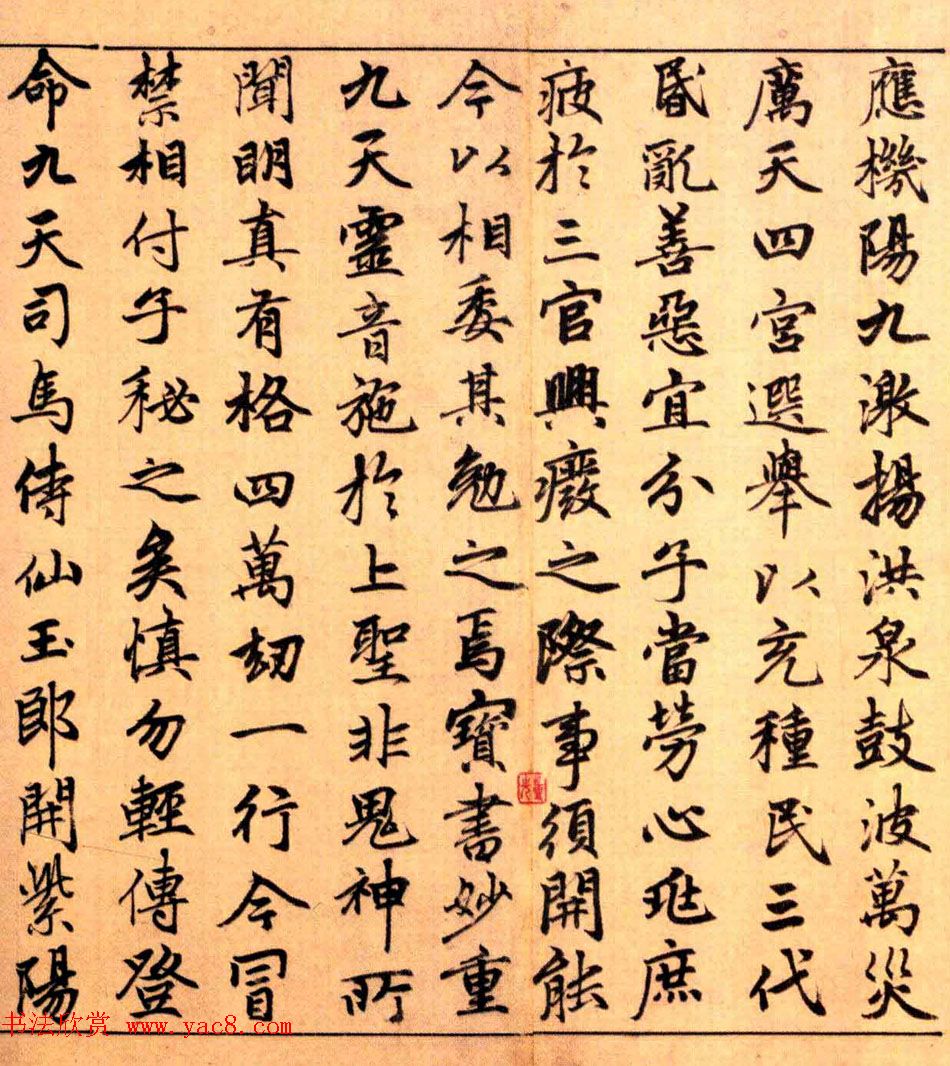 應機陽九激揚洪泉鼓波萬災
厲天四宮選舉以充種民三代
昏亂善惡宜分子當勞心兆庶
疲於三官興廢之際事須開能
今以相委其勉之焉寶書妙重
九天靈音施於上聖非鬼神所
聞明真有格四萬劫一行今冒
禁相付子秘之矣慎勿輕傳登
命九天司馬侍仙玉郎開紫陽
书法欣赏 www.yac8.com